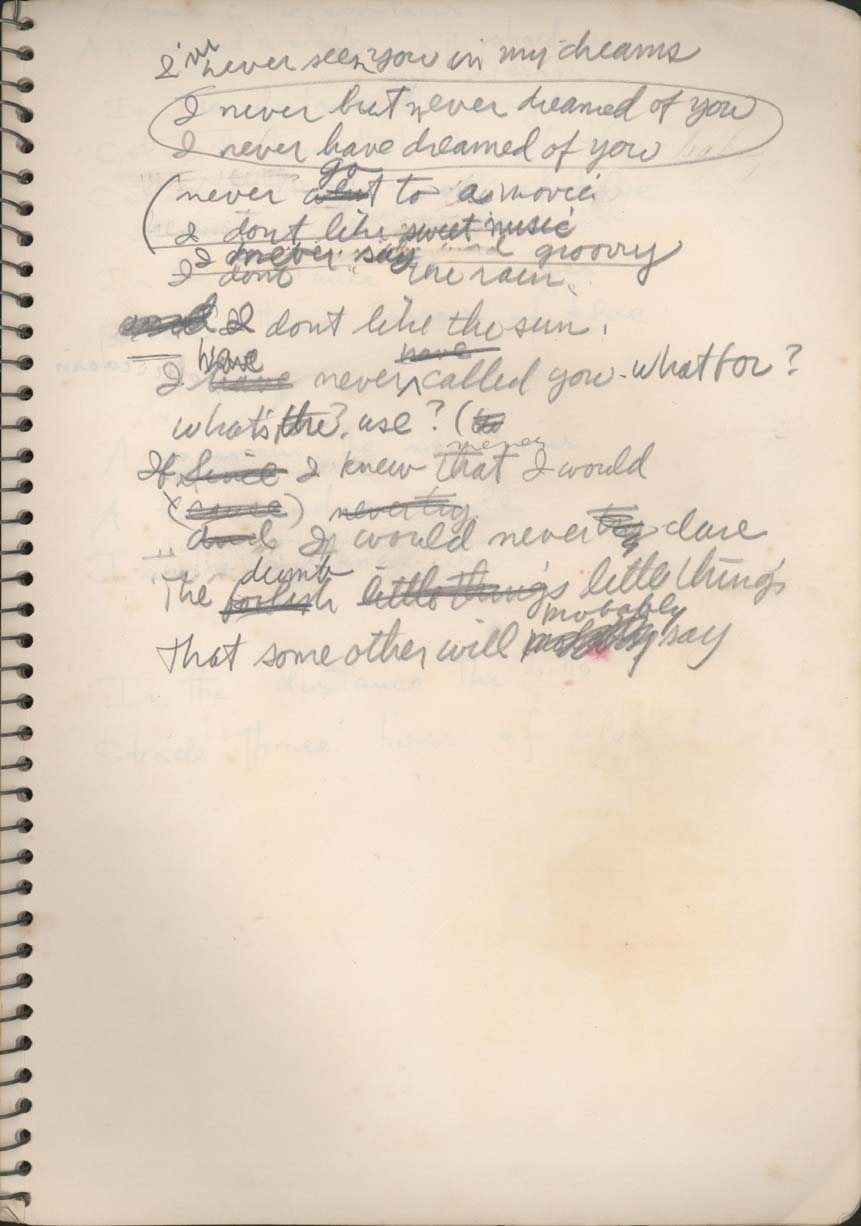 I've never seen you in my dreams
I never but never dreamed of you
I never have dreamed of you baby
go
(never to a movie
I dont like sweet music
I never say groovy
I dont the rain
I dont like the sun.
have have
I have never called you. what for?
what's the use? (to
never
If Since I knew that I would
(cause) never try
and I would never try dare
dumb
The foolish little things little things
probably
That some other will probably say